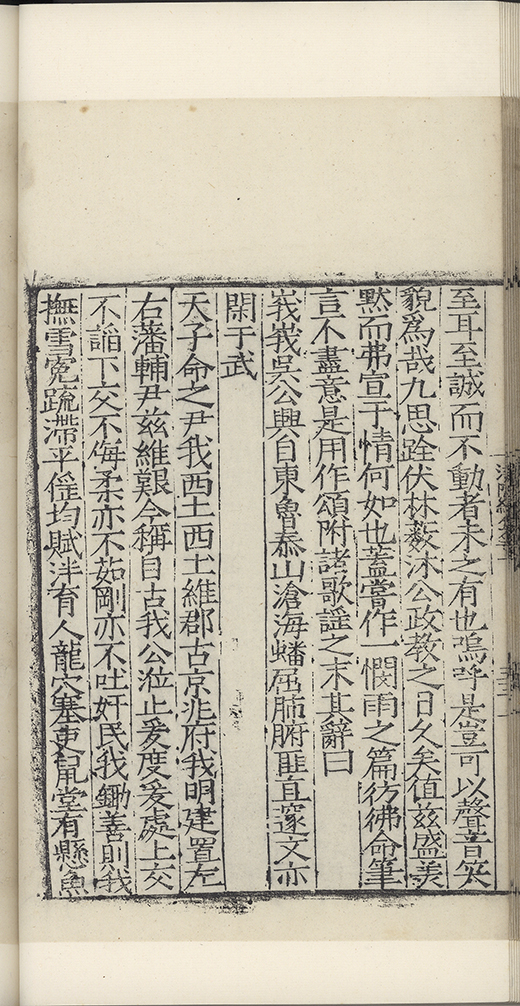 至耳至誠而不動者未之有也嗚呼是豈可以聲音笑
貌爲哉九思跧伏林藪沐公政教之日久矣值兹盛美
黙而弗宣于情何如也蓋嘗作一憫雨之篇彷彿命筆
言不盡意是用作頌附諸歌謡之末其辭曰
峩峩吳公興自東魯泰山滄海蟠屈肺腑匪直邃文亦
閑于武
天子命之尹我西土西土維郡古京兆府我明建置左
右藩輔尹兹維艱今稱自古我公涖止爰度爰處上交
不謟下交不侮柔亦不茹剛亦不吐奸民我鋤善則我
撫雪寃疏滯平徭均賦泮育人龍穴塞吏鼠堂有懸魚